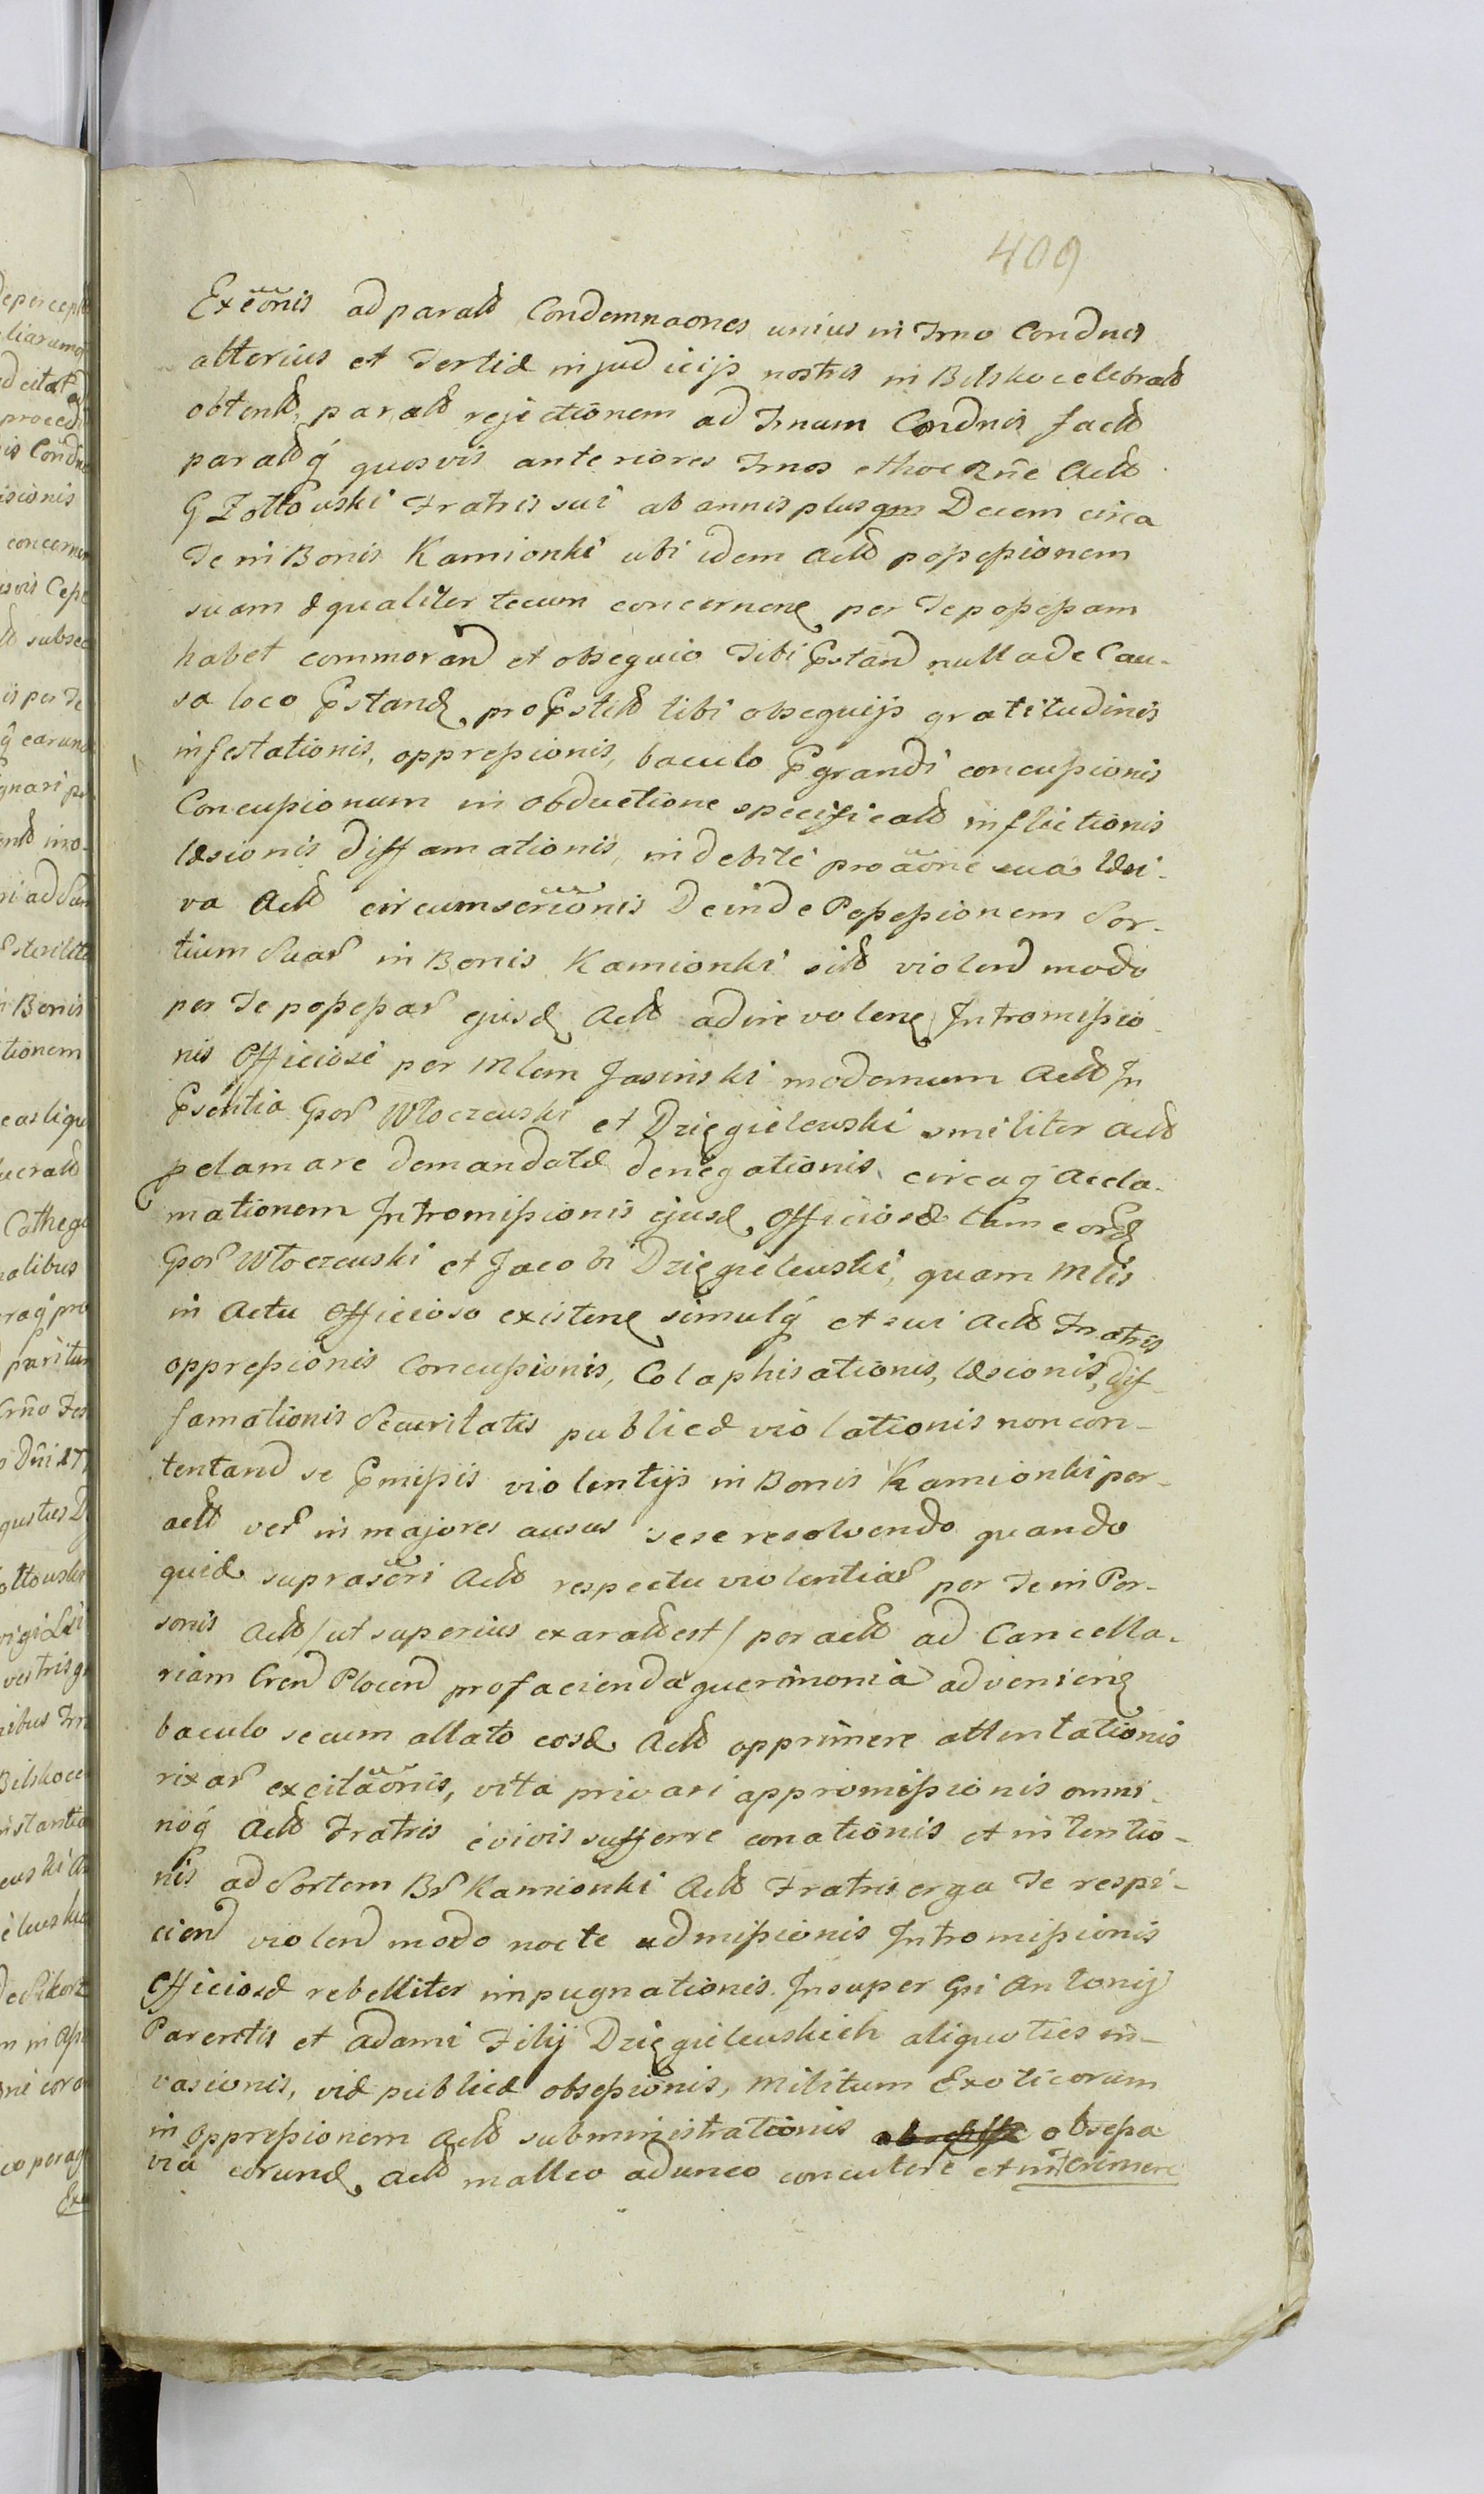 409
Exeõnis ad parald Condemnaones unius in Trno Condnis
alterius et Tertiæ in judicijs nostris in Bilsko celebrald
obtentd, parald rejectionem ad Trnum Condnis facld
paraldq́ quosvis anteriores Trnos et hoc Rñe Actd
G Zołtowski Fratris sui ab annis plusqm Decem circa
Te in Bonis Kamionki ubi idem Actd possessionem
suam æqualiter tecum concernen per Te possessam
habet commorand et obsequio Tibi Pstand nulla de Cau-
sa loco Pstand pro Pstitd tibi obsequijs gratitudinis
infestationis, oppressionis, baculo Pgrandi concussionis
Concussionum in obductione specificald inflictionis
læsionis diffamationis, indebite pro aõne sua læsi-
va Actd circumscriõnis Deinde Possessionem Sor-
tium Suar in Bonis Kamionki sitd violend modo
per Te possessar ejusd Actd adire volen Intromissio-
nis Officiosæ per Mlem Jasinski modernum Actd In
Psentia Gor Włoczewski et Dzięgielewski similiter Actd
pclamare demandatæ denegationis circaq́ Accla-
mationem Intromissionis ejusd, Officiosæ tam eord
Gor Włoczewski et Jacobi Dzięgielewski, quam Mlis
in Actu Officioso existen simulq́ et sui Actd Fratris
oppressionis Concussionis, Colaphisationis, læsionis, dif-
famationis Securitatis publicæ violationis non con-
tentand se Pmissis violentijs in Bonis Kamionki per-
actd ver in majores ausus sese resolvendo quando
quid suprascri Actd respectu violentiar per Te in Per-
sonis Actd /ut superius exarald est/ peractd ad Cancella-
riam Crend Plocend pro facienda querimonia advenien
baculo secum allato eosd Actd opprimere attentationis
rixar excitaõnis, vita privari appromissionis omni-
noq́ Actd Fratris e vivis sufferre conationis et intentio-
nis ad Sortem Br Kamionki Actd Fratris erga Te respi-
ciend violend modo nocte admissionis Intromissionis
Officiosæ rebelliter impugnationis. Insuper Gsi Antonij
Parentis et Adami Filij Dzięgielewskich aliquoties in-
vasionis, viæ publicæ obsessionis, Militum Exoticorum
in oppressionem Actd subministrationis obsessa
via eorund Actd malleo adunco concutere et interimere